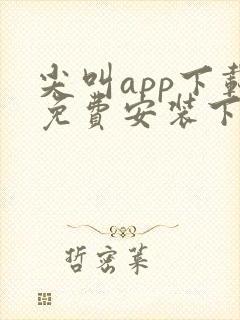 尖叫app下载
免费安装下
哲密菜